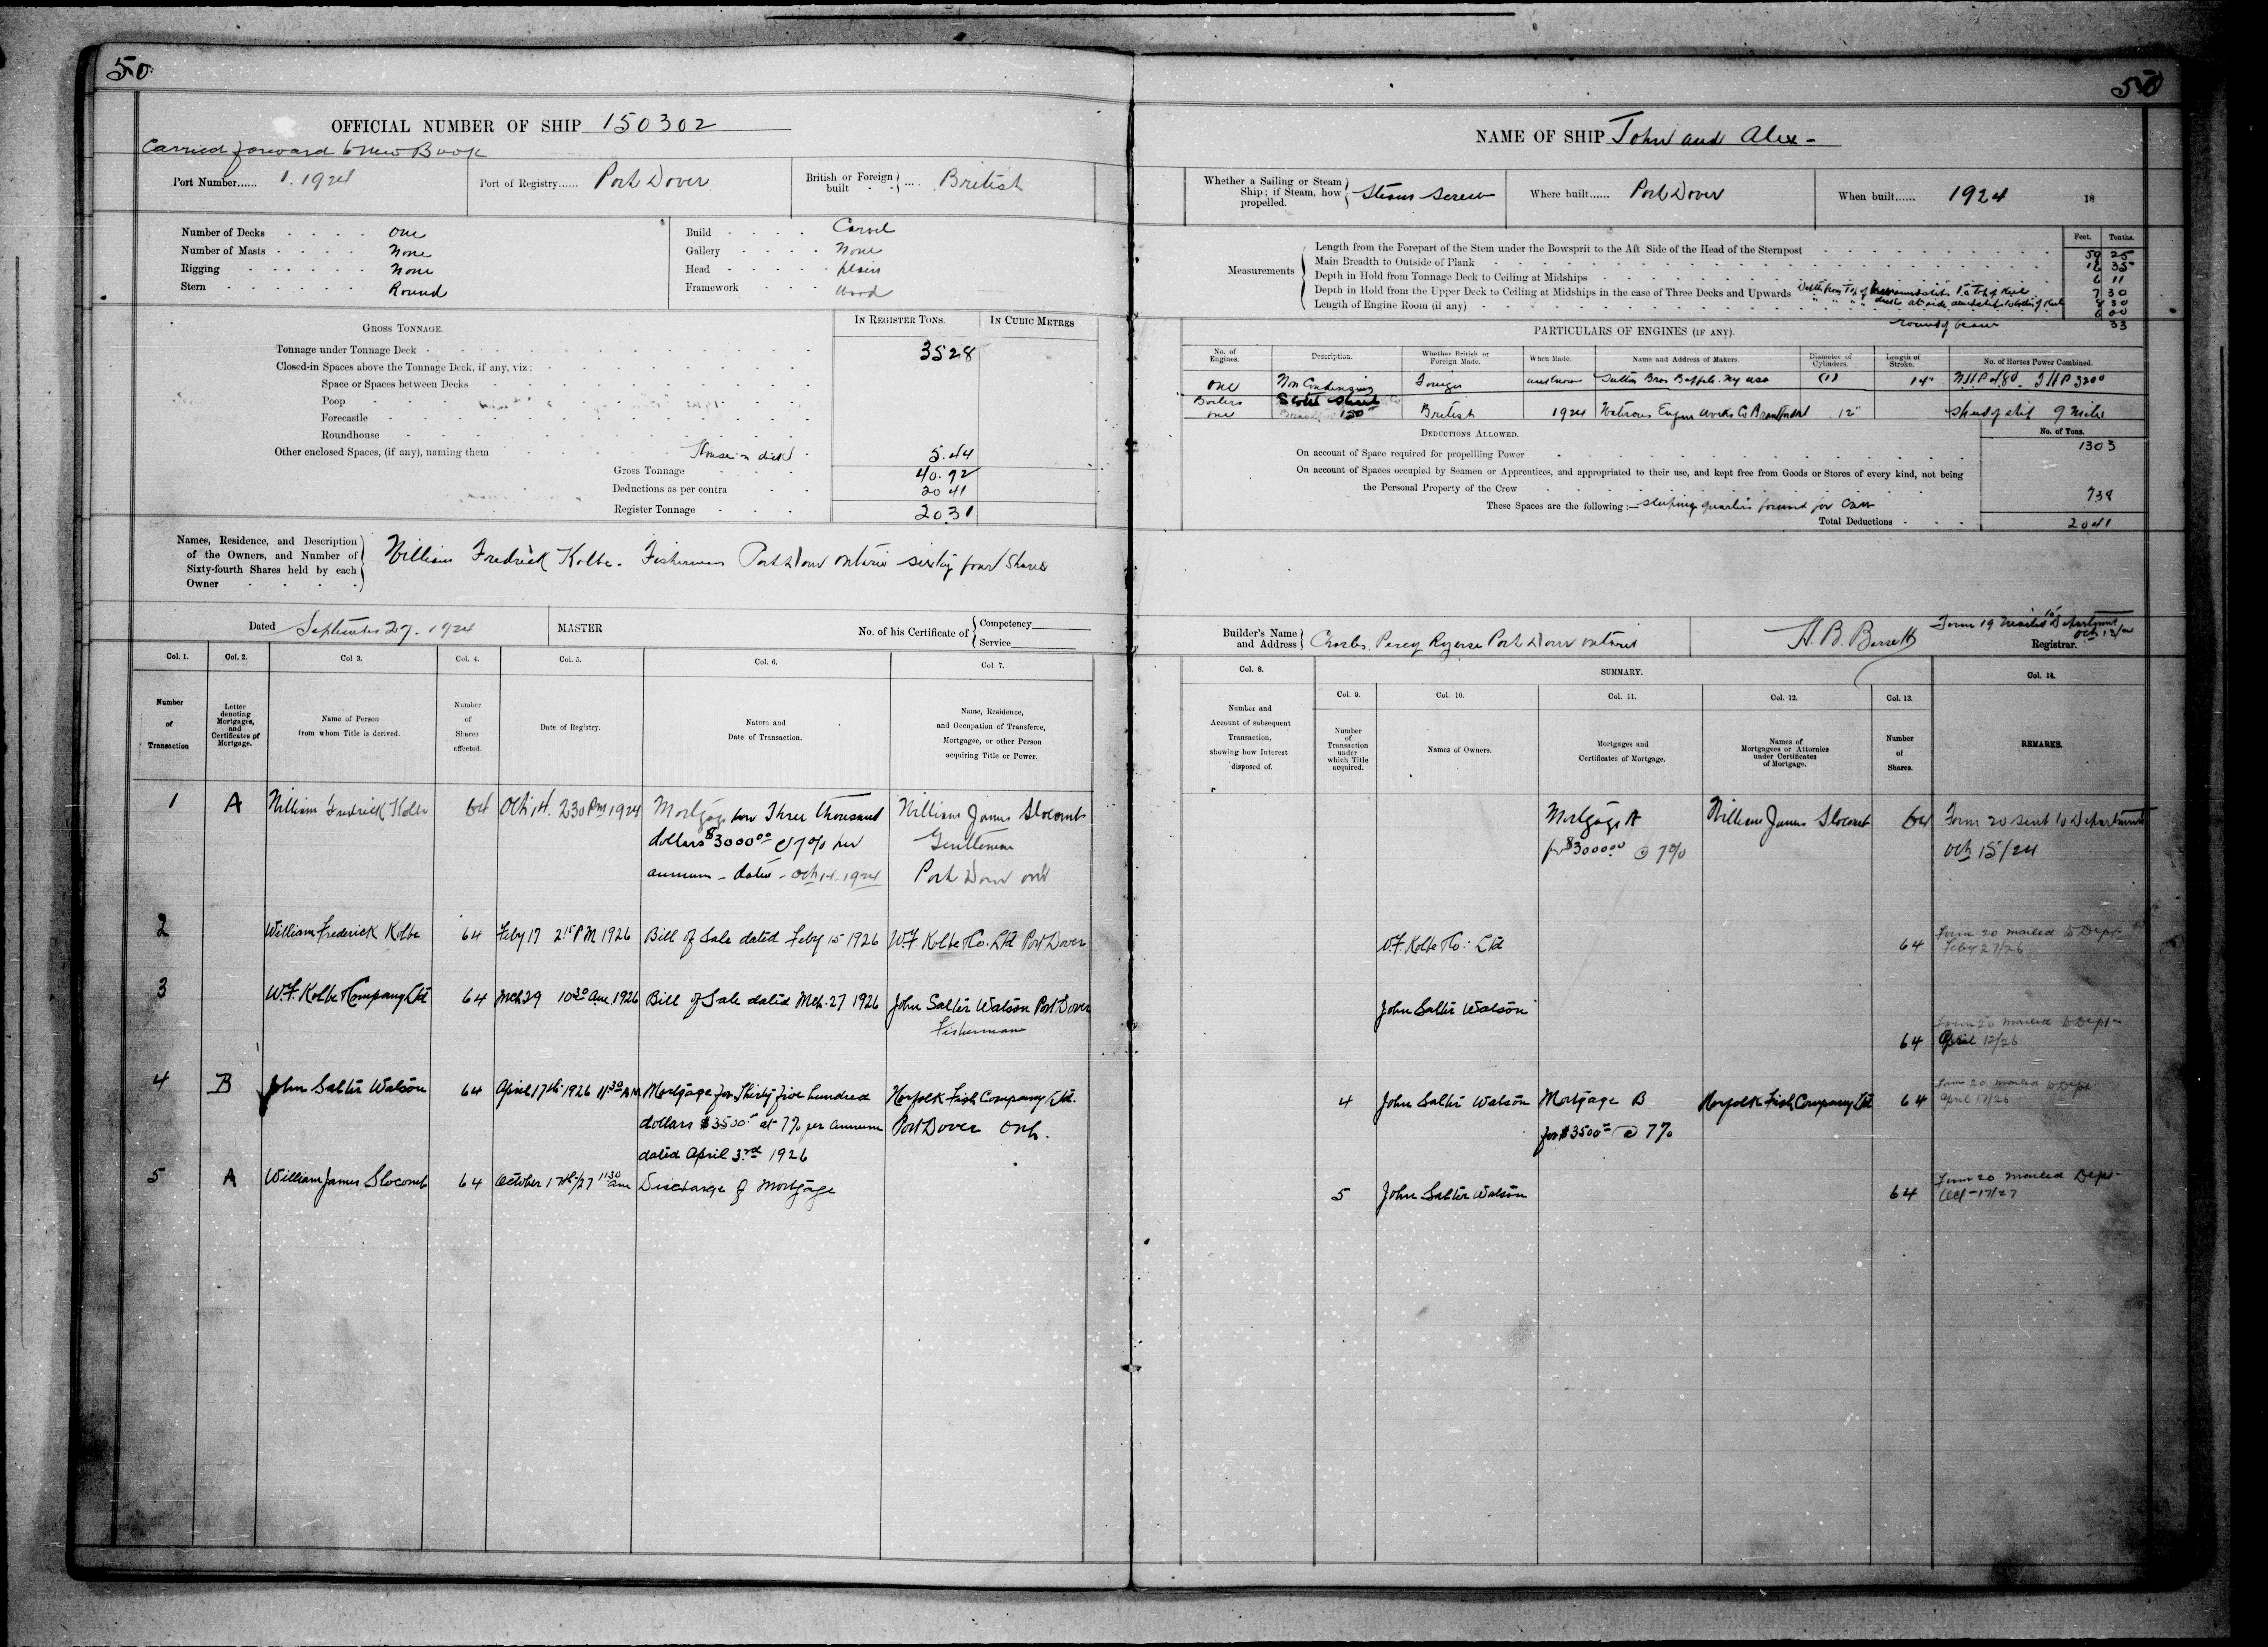 50
50
OFFICIAL NUMBER OF SHIP 150302
Carried forward to New Book
Port Number...... 1. 1924
Port of Registry...... Port Dover
British or Foreign built .... British
Number of Decks One
Number of Masts None
Rigging None
Stern Round
Build Carvel
Gallery None
Head plain
Framework Wood
GROSS TONNAGE.
IN REGISTER TONS.
IN CUBIC METRES
Tonnage under Tonnage Deck 35 28
Closed-in Spaces above the Tonnage Deck, if any, viz:
Space or Spaces between Decks
Poop
Forecastle
Roundhouse
Other enclosed Spaces, (if any), naming them House on deck 5.44
Gross Tonnage 40.92
Deductions as per contra 20 41
Register Tonnage 20.31
Names, Residence, and Description of the Owners, and Number of Sixty-fourth Shares held by each Owner
William Fredrick Kolbe. Fisherman Port Dover Ontario sixty four Shares
Dated September 27. 1924
MASTER
No. of his Certificate of
Competency
Service
Col. 1. Col. 2. Col 3. Col. 4. Col. 5. Col. 6. Col 7.
Number of Transaction
Letter denoting Mortgages, and Certificates of Mortgage.
Name of Person from whom Title is derived.
Number of Shares affected.
Date of Registry.
Nature and Date of Transaction.
Name, Residence, and Occupation of Transferee, Mortgagee, or other Person acquiring Title or Power.
1 A William Fredrick Kolbe 64 Oct 14. 2 30 Pm 1924 Mortgage for Three thousand William James Slocomb
dollars $3000 00 @ 7% per Gentleman
annum - dated - Oct 14. 1924 Port Dover Ont
2 William Frederick Kolbe 64 Feby 17 2 15 PM 1926 Bill of Sale dated Feby 15 1926 W.F. Kolbe & Co. Ltd Port Dover
3 W.F. Kolbe & Company Ltd 64 Mch 29 10 30 am 1926 Bill of Sale dated Mch. 27 1926 John Salter Watson Port Dover
Fisherman
4 B John Salter Watson 64 April 17th 1926 11 30 AM Mortgage for Thirty five hundred Norfolk Fish Company Ltd.
dollars $3500 at 7% per annum Port Dover Ont.
dated April 3rd 1926
5 A William James Slocomb 64 October 17th/27 11 30 am Discharge of Mortgage
NAME OF SHIP John and Alex -
Whether a Sailing or Steam Ship; if Steam, how propelled. Steam Screw
Where built...... Port Dover
When built...... 1924 18
Measurements
Feet. Tenths.
Length from the Forepart of the Stem under the Bowsprit to the Aft Side of the Head of the Sternpost 59 25
Main Breadth to Outside of Plank 16 35
Depth in Hold from Tonnage Deck to Ceiling at Midships 6 11
Depth in Hold from the Upper Deck to Ceiling at Midships in the case of Three Decks and Upwards 7 30
Length of Engine Room (if any) 8 30
6 00
round of beam 33
PARTICULARS OF ENGINES (IF ANY).
No. of Engines. Description. Whether British or Foreign Made. When Made. Name and Address of Makers. Diameter of Cylinders. Length of Stroke. No. of Horses Power Combined.
One Non Condensing Foreign unknown Sutton Bros Buffalo. Ny usa 14"
Boilers
one British 1924 Waterous Engine Works Co Brantford 12" Speed of ship 9 miles
DEDUCTIONS ALLOWED.
No. of Tons.
On account of Space required for propellling Power 13 03
On account of Spaces occupied by Seamen or Apprentices, and appropriated to their use, and kept free from Goods or Stores of every kind, not being
the Personal Property of the Crew 7 38
These Spaces are the following:— sleeping quarters forward for crew
Total Deductions 20 41
Builder's Name and Address Charles Percy Ryerse Port Dover Ontario
Form 19 mailed to Department
Registrar.
Col. 8. SUMMARY. Col. 14.
Col. 9. Col. 10. Col. 11. Col. 12. Col. 13.
Number and Account of subsequent Transaction, showing how Interest disposed of.
Number of Transaction under which Title acquired.
Names of Owners.
Mortgages and Certificates of Mortgage.
Names of Mortgagees or Attornies under Certificates of Mortgage.
Number of Shares.
REMARKS.
Mortgage A William James Slocomb 64 Form 20 sent to Department
for $3000 00 @ 7% Oct 15/24
W.F. Kolbe & Co: Ltd 64 Form 20 mailed to Dept
Feby 27/26
John Salter Watson
Form 20 mailed to Dept
64 April 12/26
4 John Salter Watson Mortgage B Norfolk Fish Company Ltd 64 Form 20 mailed to Dept
April 17/26
for $3500 @ 7%
5 John Salter Watson 64 Form 20 mailed Dept
Oct - 17/27